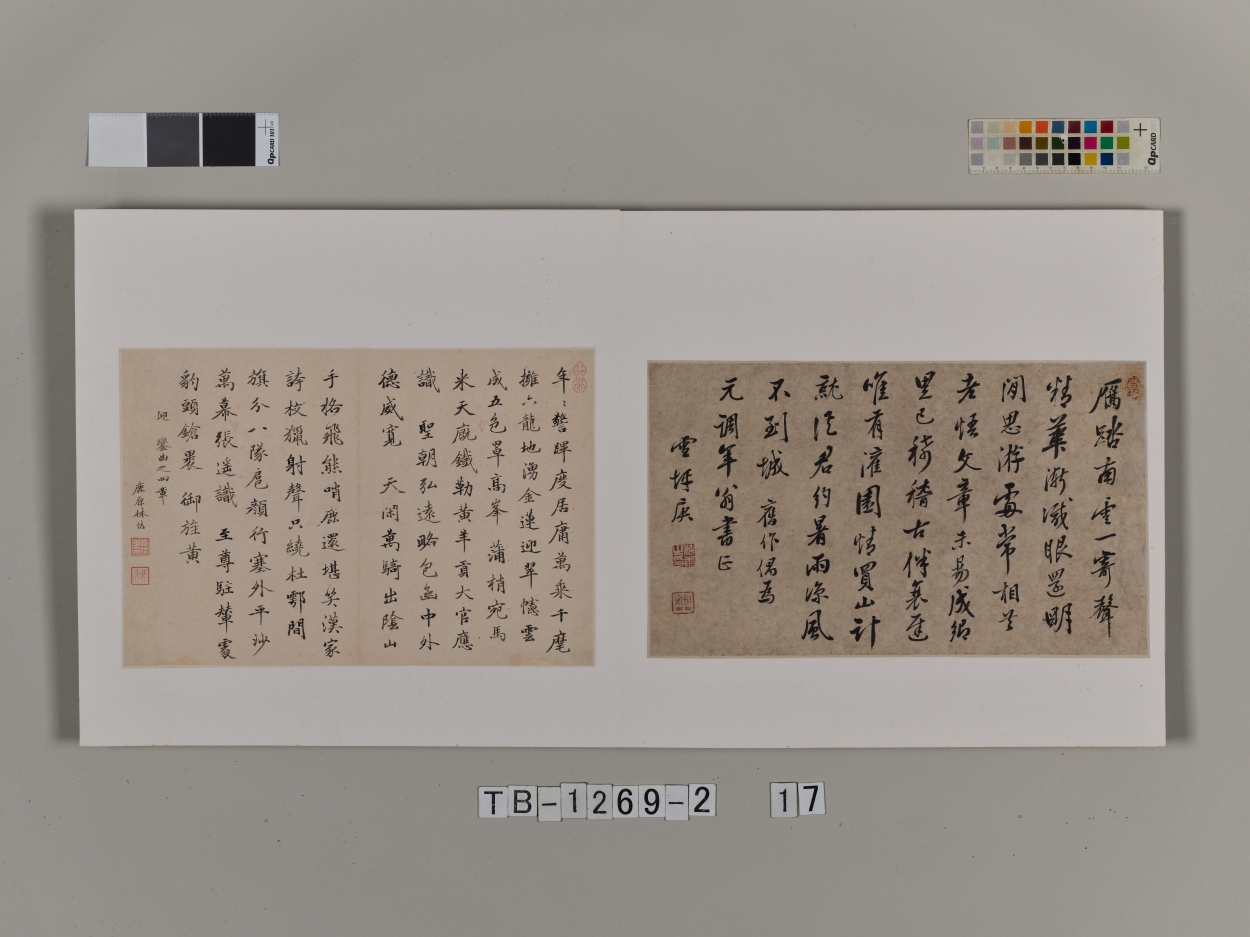 雁路南雲一寄聲
精華漸減眼還明
閒思游處常相
老悟文章未易成鄉
里已稀稽古伴衰遲
唯有灌園情買山計
就從君約暑雨涼風
不到城 舊作偶為
元調年翁書正
雪坪庚
年〻警蹕度居庸萬乘千麾
擁六龍地湧金蓮迎翠幰雲
成五色罩高峯 蒲梢宛馬
來天廐鐵勒黃羊貢大官應
識 聖朝弘遠略包函中外
德威寬 天閑萬騎出陰山
手格飛熊哨鹿還堪笑漢家
誇校獵射聲只繞杜鄠間
旗分八隊扈顏行塞外平沙
萬幕張遙識 至尊駐輦處
豹頭鎗裏御旌黃
迎鑾曲之四章
林佶
TB-1269-2 17
QPCARD 101
QPCARD